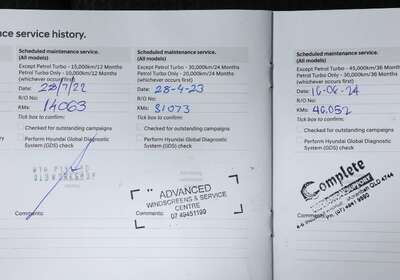 nce service history.
Scheduled maintenance service.
(All models)
Except Petrol Turbo - 15,000km/12 Months
Petrol Turbo Only - 10,000km/12 Months
(whichever occurs first)
Date: 28/7/22
R/O No:
KMs: 14063
Tick box to confirm:
Checked for outstanding campaigns
Perform Hyundai Global Diagnostic
System (GDS) check
Comments:
Scheduled maintenance service.
(All models)
Except Petrol Turbo - 30,000km/24 Months
Petrol Turbo Only - 20,000km/24 Months
(whichever occurs first)
Date: 28-4-23
R/O No:
KMs: 31073
Tick box to confirm:
Checked for outstanding campaigns
Perform Hyundai Global Diagnostic
System (GDS) check
ADVANCED
WINDSCREENS & SERVICE
CENTRE
07 49451190
Comments:
Scheduled maintenance service.
(All models)
Except Petrol Turbo - 45,000km/36 Months
Petrol Turbo Only - 30,000km/36 Months
(whichever occurs first)
Date: 16-04-24
R/O No:
KMs: 46,052
Tick box to confirm:
Checked for outstanding campaigns
Perform Hyundai Global Diagnostic
System (GDS) check
Complete
Moranbah QLD 4744
Comments: